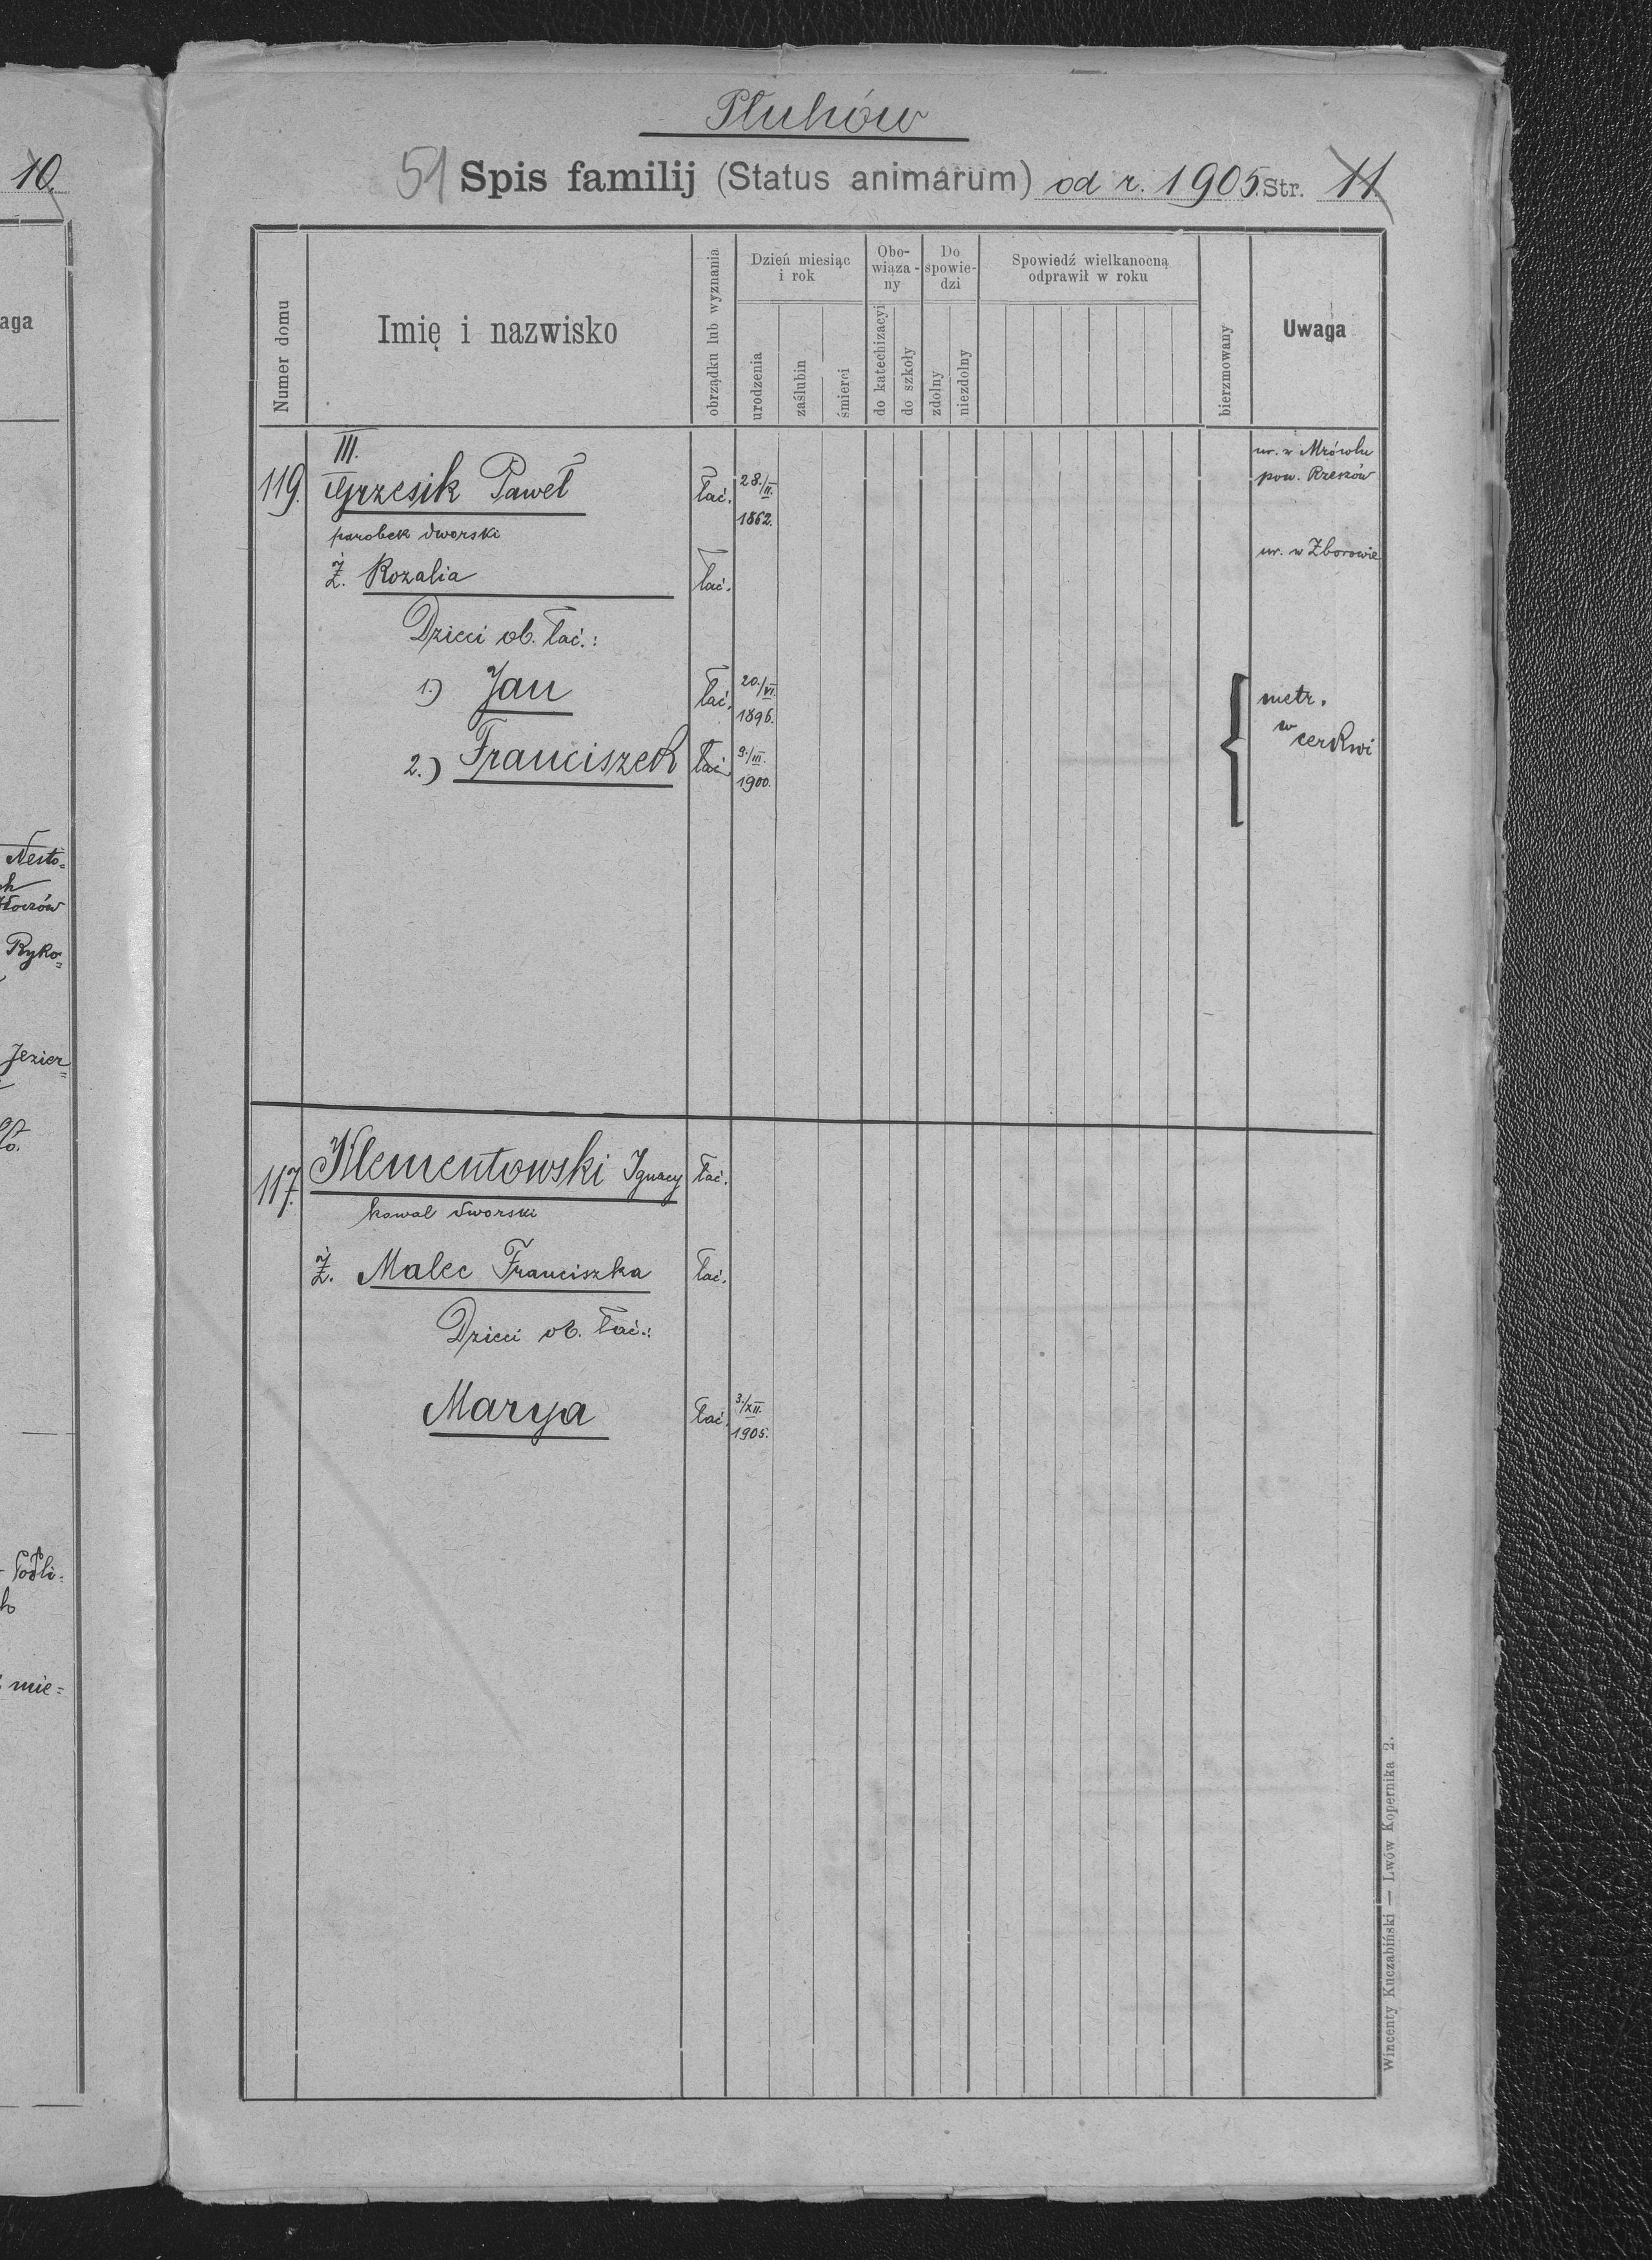 10.
aga
Nesto=
Złoczów
Ryko=
Jezier=
mie=
Płuhów
51 Spis familij (Status animarum) od r. 1905. Str. 11
Numer domu
Imię i nazwisko
obrządku lub wyznania
Dzień miesiąc
i rok
urodzenia
zaślubin
śmierci
Obo-
wiąza-
ny
do katechizacyi
do szkoły
Do
spowie-
dzi
zdolny
niezdolny
Spowiedź wielkanocną
odprawił w roku
bierzmowany
Uwaga
III.
119. Grzesik Paweł łać. 28./II. 1862. ur. w Mrówlu
pow. Rzeszów
parobek dworski
Ż. Rozalia łać. ur. w Zborowie
Dzieci ob. łać.:
1.) Jan łać. 20./VI. 1896. metr.
w cerkwi
2.) Franciszek łać. 9./III. 1900.
117. Klementowski Ignacy łać.
kowal dworski
Ż. Malec Franciszka łać.
Dzieci ob. łać.:
Marya łać. 3./XII. 1905.
Wincenty Kuczabiński — Lwów Kopernika 2.